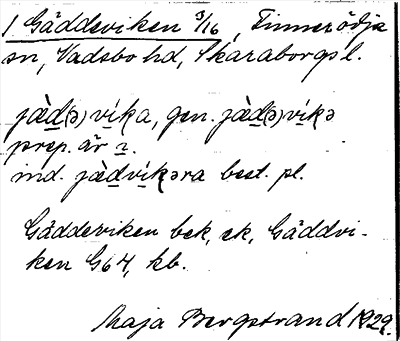 1 Gäddeviken 3/16, Finnerödja
sn, Vadsbo hd, Skaraborgs l.
jàd(ə)vika, gen. jàd(ə)vikə
prep. är 2.
ind. jàdvikəra best. pl.
Gäddeviken bek, ek, Gäddvi-
ken G64, kb.
Maja Bergstrand 1929.